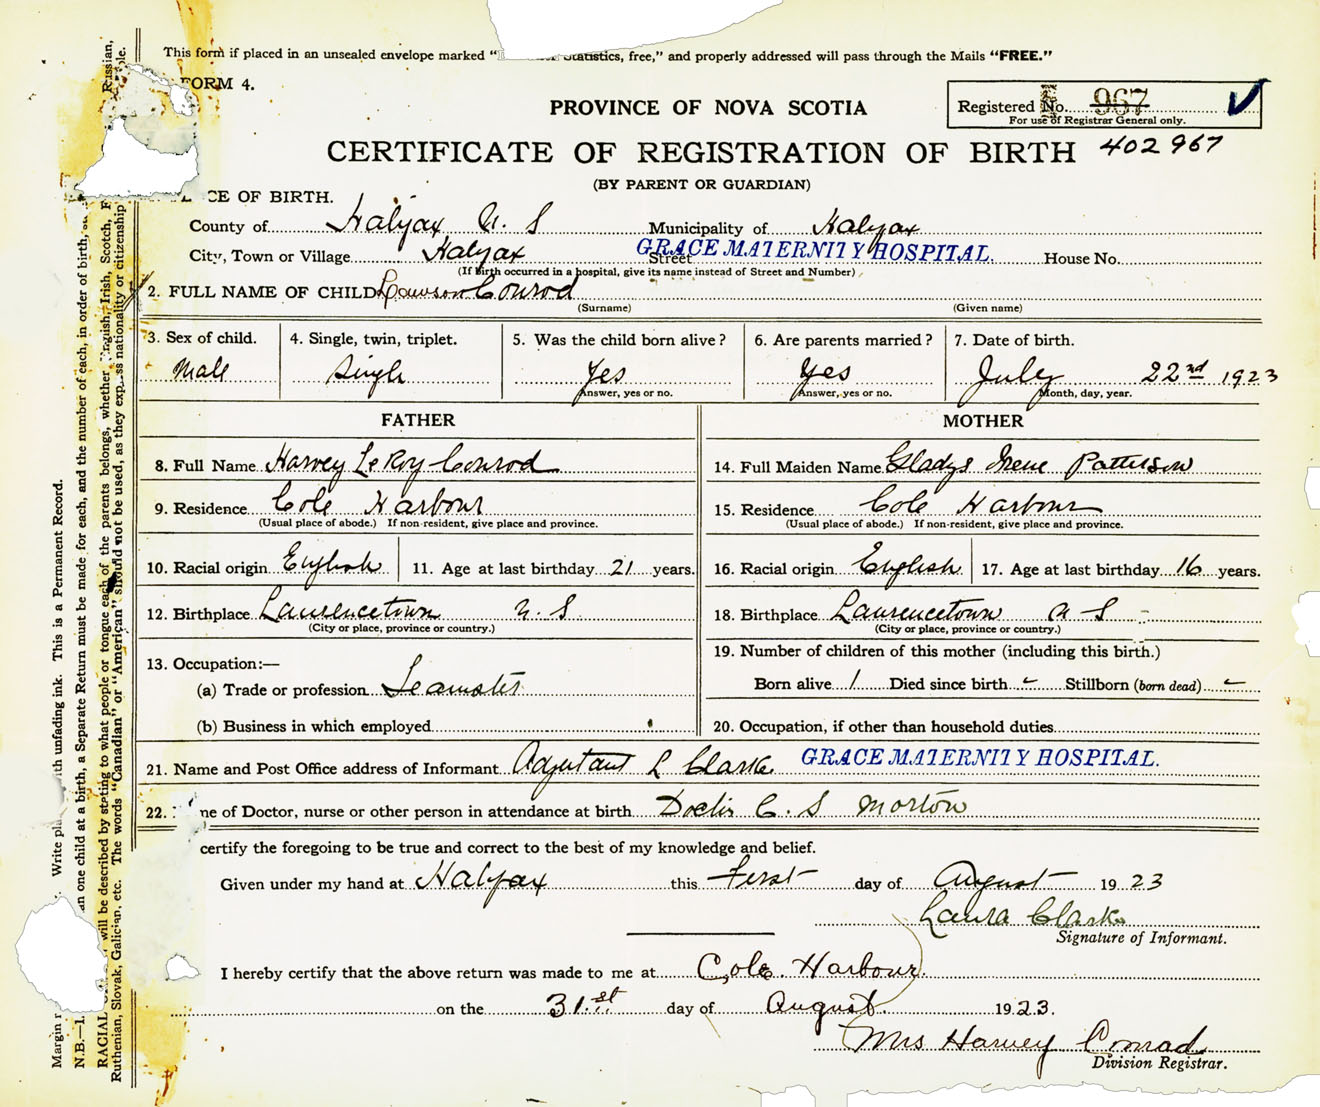 This form if placed in an unsealed envelope marked " Statistics, free," and properly addressed will pass through the Mails "FREE."
FORM 4.
PROVINCE OF NOVA SCOTIA
Registered No. 967
For use of Registrar General only.
CERTIFICATE OF REGISTRATION OF BIRTH 402967
(BY PARENT OR GUARDIAN)
CE OF BIRTH.
County of Halifax N. S Municipality of Halifax
City, Town or Village Halifax Street GRACE MATERNITY HOSPITAL. House No.
(If birth occurred in a hospital, give its name instead of Street and Number)
2. FULL NAME OF CHILD Lawson Conrod
(Surname) (Given name)
3. Sex of child. 4. Single, twin, triplet. 5. Was the child born alive? 6. Are parents married? 7. Date of birth.
Male Single Yes Yes July 22nd 1923
Answer, yes or no. Answer, yes or no. Month, day, year.
FATHER MOTHER
8. Full Name Harvey LeRoy Conrod 14. Full Maiden Name Gladys Irene Patterson
9. Residence Cole Harbour 15. Residence Cole Harbour
(Usual place of abode.) If non-resident, give place and province. (Usual place of abode.) If non-resident, give place and province.
10. Racial origin English 11. Age at last birthday 21 years. 16. Racial origin English 17. Age at last birthday 16 years.
12. Birthplace Laurencetown N. S. 18. Birthplace Laurencetown N S
(City or place, province or country.) (City or place, province or country.)
13. Occupation:— 19. Number of children of this mother (including this birth.)
(a) Trade or profession Teamster Born alive 1 Died since birth - Stillborn (born dead) -
(b) Business in which employed 20. Occupation, if other than household duties
21. Name and Post Office address of Informant Adjutant L Clarke GRACE MATERNITY HOSPITAL.
22. me of Doctor, nurse or other person in attendance at birth Doctor C. S Morton
certify the foregoing to be true and correct to the best of my knowledge and belief.
Given under my hand at Halifax this First day of August 1923
Laura Clarke
Signature of Informant.
I hereby certify that the above return was made to me at Cole Harbour.
on the 31.st day of August 1923.
Mrs Harvey Conrad
Division Registrar.
Margin r . Write pla ith unfading ink. This is a Permanent Record.
N.B.—I an one child at a birth, a Separate Return must be made for each, and the number of each, in order of birth,
RACIAL will be described by stating to what people or tongue each of the parents belongs, whether English, Irish, Scotch, Russian,
Ruthenian, Slovak, Galician, etc. The words "Canadian" or "American" should not be used, as they express nationality or citizenship